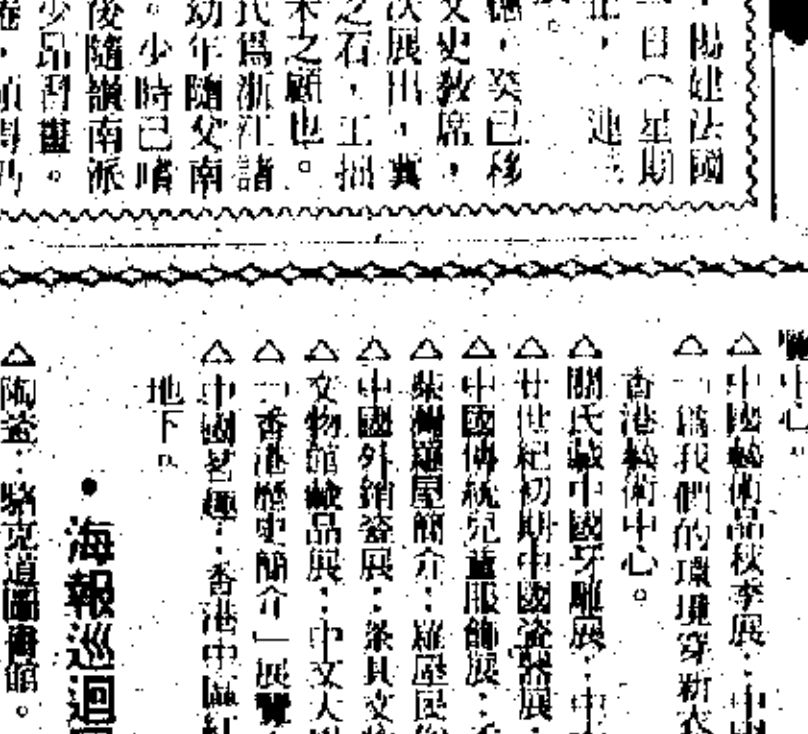 楊建法國
日(星期
止,
癸已移
文史教席,
次展出,冀
之石,工拙
未之顧也。
氏爲浙江諸
幼年隨父南
。少時已嗜
後隨嶺南派
少昂習畫。
中心。
△中國藝術品秋季展:中國
△「爲我們的環境穿新衣
香港藝術中心。
△關氏藏中國牙雕展:中
△廿世紀初期中國瓷器展:
△中國傳統兒童服飾展:
△柴灣羅屋簡介:羅屋民俗
△中國外銷瓷展:茶具文物
△文物館藏品展:中文大學
△「香港歷史簡介」展覽
△中國茗趣:香港中區紅
地下。
•海報巡迴展
△陶瓷:駱克道圖書館。